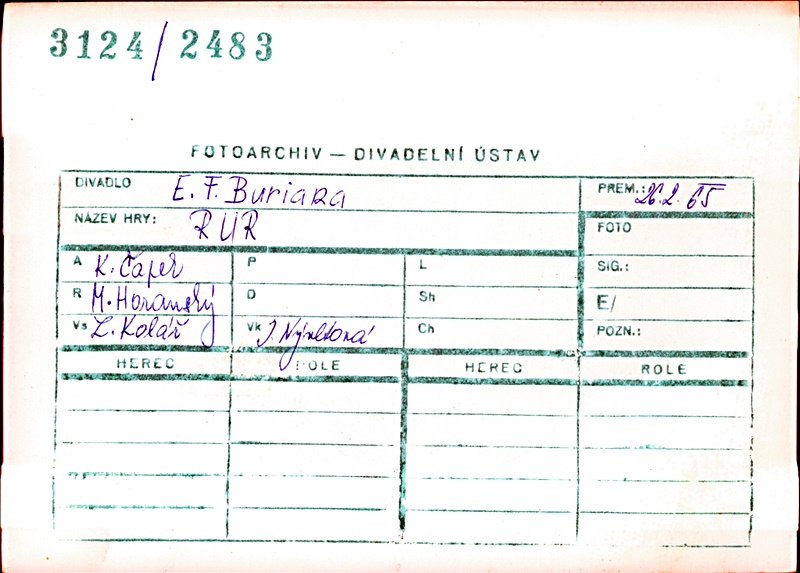 3124/2483
FOTOARCHIV — DIVADELNÍ ÚSTAV
DIVADLO E. F. Buriana PREM.: 26.2.65
NÁZEV HRY: RUR FOTO
A K. Čapek P L SIG.:
R M. Horanský D Sh E/
Vs Z. Kolář Vk J. Nývltová Ch POZN.:
HEREC ROLE HEREC ROLE